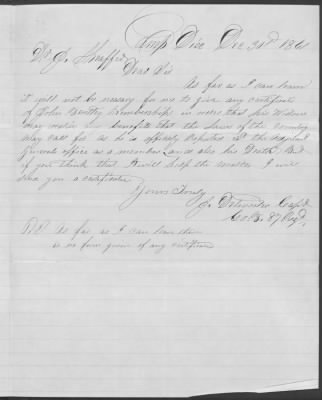 Camp Dix Dec 31st 1861
W. J. Shaffer
Dear Sir
As far as I can learn
it will not be necesary for me to give any certificate
of John Bentty Membership in order that his Widow
may receive any benefits that the laws of the country
may call for as he is officialy Reported at the Adjutant
Generals office as a member and also his Death. But
if you think that it will help the matter I will
send you a certificate
Yours Truly
J. Capt
Co B. 87 Regt.
P.S. As far as I can learn there
is no form given of any certificate